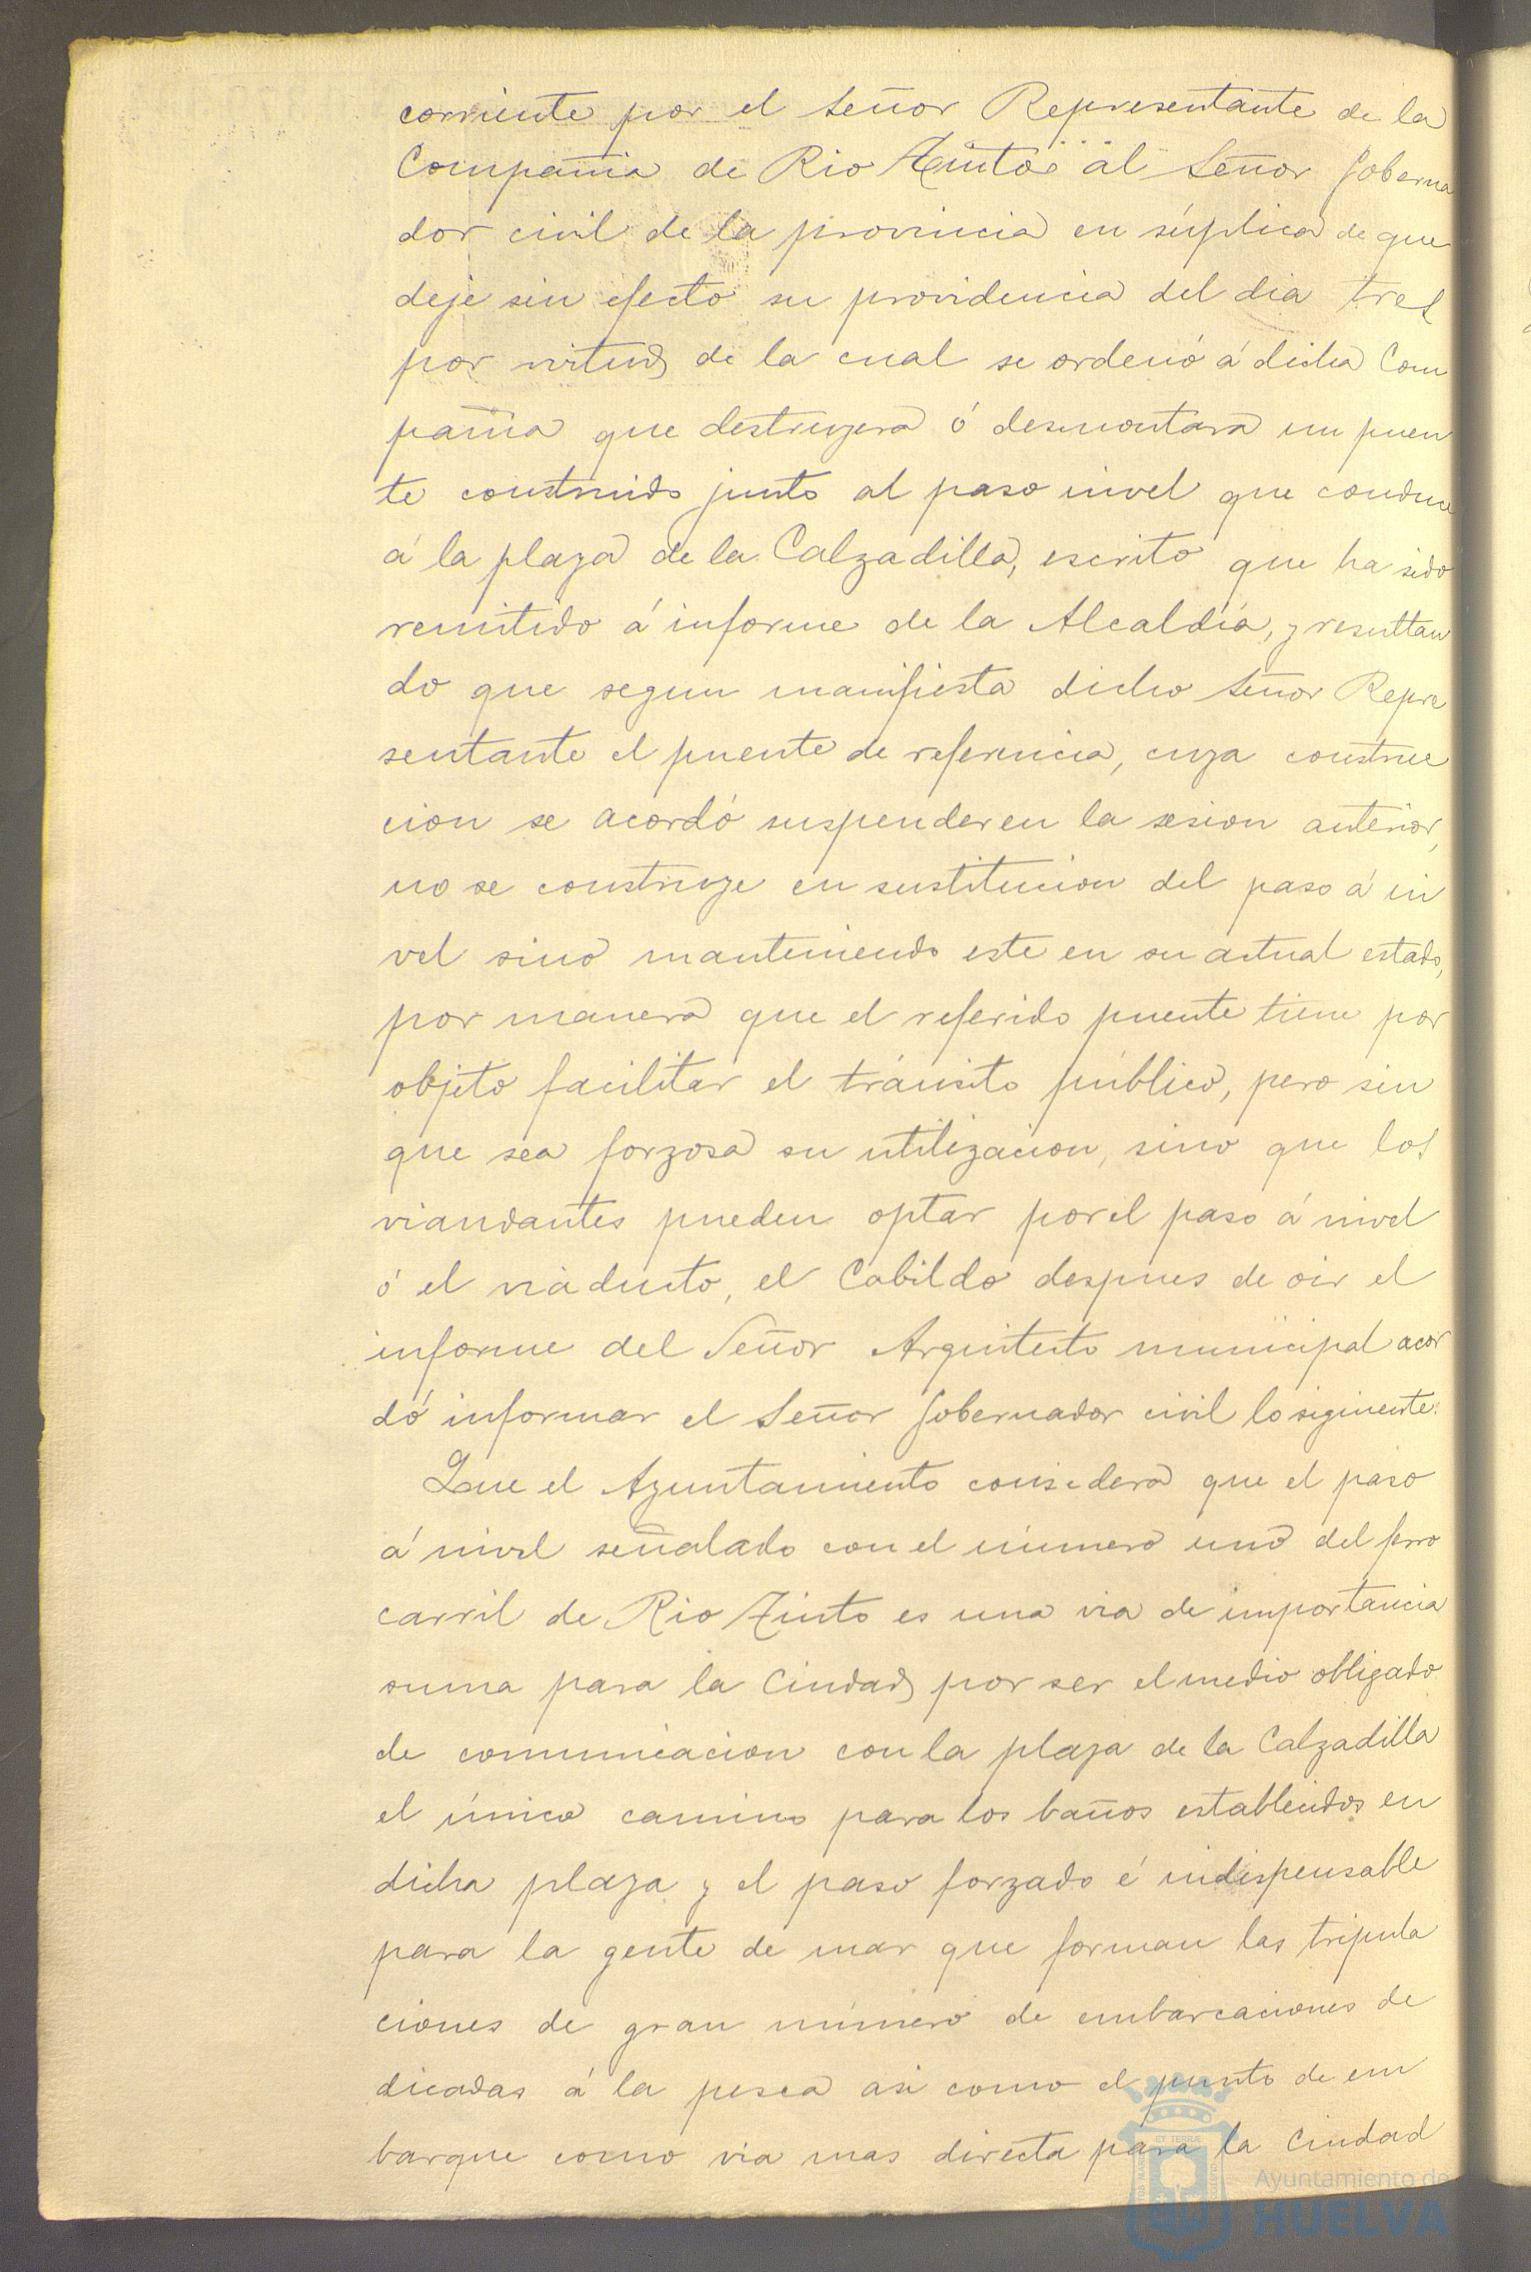 corriente por el Señor Representante de la
Compañia de Rio Tinto al Señor Goberna
dor civil de la provincia en súplica de que
deje sin efecto su providencia del dia tres
por virtud de la cual se ordenó á dicha Com
pañia que destruyera ó desmontara un puen
te construido junto al paso nivel que conduce
á la playa de la Calzadilla, escrito que ha sido
remitido á informe de la Alcaldía, y resultan
do que segun manifiesta dicho Señor Repre
sentante el puente de referencia, cuya construc
cion se acordó suspender en la sesion anterior,
no se construye en sustitucion del paso á ni
vel sino manteniendo este en su actual estado,
por manera que el referido puente tiene por
objeto facilitar el tránsito público, pero sin
que sea forzosa su utilizacion, sino que los
viandantes pueden optar por el paso á nivel
ó el viaducto, el Cabildo despues de oir el
informe del Señor Arquitecto municipal acor
dó informar el Señor Gobernador civil lo siguiente:
Que el Ayuntamiento considera que el paso
á nivel señalado con el número uno del ferro
carril de Rio Tinto es una via de importancia
suma para la Ciudad por ser el medio obligado
de comunicacion con la playa de la Calzadilla
el único camino para los baños establecidos en
dicha playa y el paso forzado é indispensable
para la gente de mar que forman las tripula
ciones de gran número de embarcaciones de
dicadas á la pesca asi como el punto de em
barque como via mas directa para la Ciudad
Ayuntamiento de
HUELVA